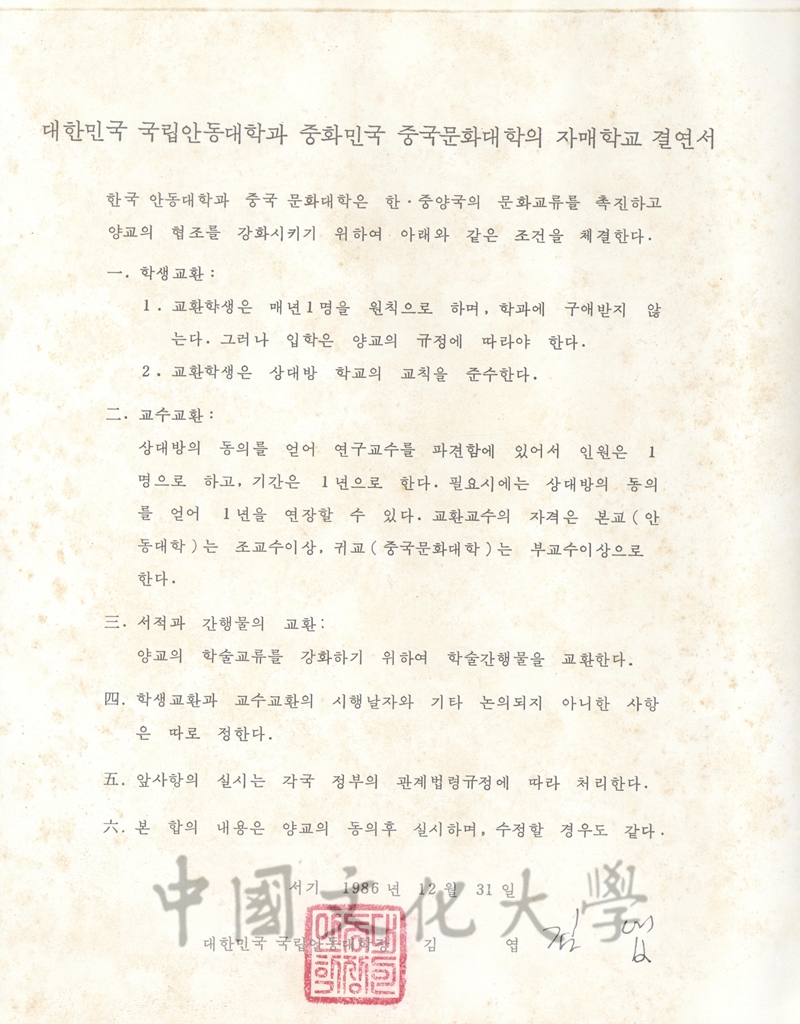 대한민국 국립안동대학과 중화민국 중국문화대학의 자매학교 결연서
한국 안동대학과 중국 문화대학은 한·중양국의 문화교류를 촉진하고
양교의 협조를 강화시키기 위하여 아래와 같은 조건을 체결한다.
一. 학생교환:
1. 교환학생은 매년1명을 원칙으로 하며, 학과에 구애받지 않
는다. 그러나 입학은 양교의 규정에 따라야 한다.
2. 교환학생은 상대방 학교의 교칙을 준수한다.
二. 교수교환:
상대방의 동의를 얻어 연구교수를 파견함에 있어서 인원은 1
명으로 하고, 기간은 1년으로 한다. 필요시에는 상대방의 동의
를 얻어 1년을 연장할 수 있다. 교환교수의 자격은 본교(안
동대학)는 조교수이상, 귀교(중국문화대학)는 부교수이상으로
한다.
三. 서적과 간행물의 교환:
양교의 학술교류를 강화하기 위하여 학술간행물을 교환한다.
四. 학생교환과 교수교환의 시행날자와 기타 논의되지 아니한 사항
은 따로 정한다.
五. 앞사항의 실시는 각국 정부의 관계법령규정에 따라 처리한다.
六. 본 합의 내용은 양교의 동의후 실시하며, 수정할 경우도 같다.
서기 1986년 12월 31일
中國文化大學
대한민국 국립안동대학장 김 엽 김 엽